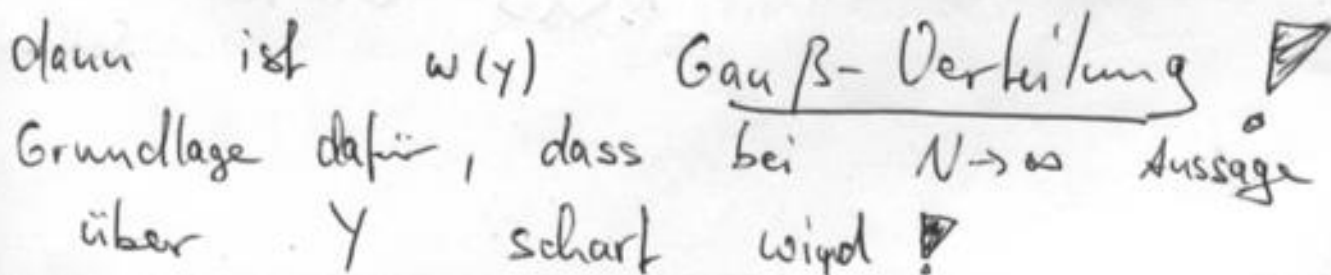 dann ist w(y) Gauß-Verteilung!
Grundlage dafür, dass bei N→∞ Aussage
über Y scharf wird!